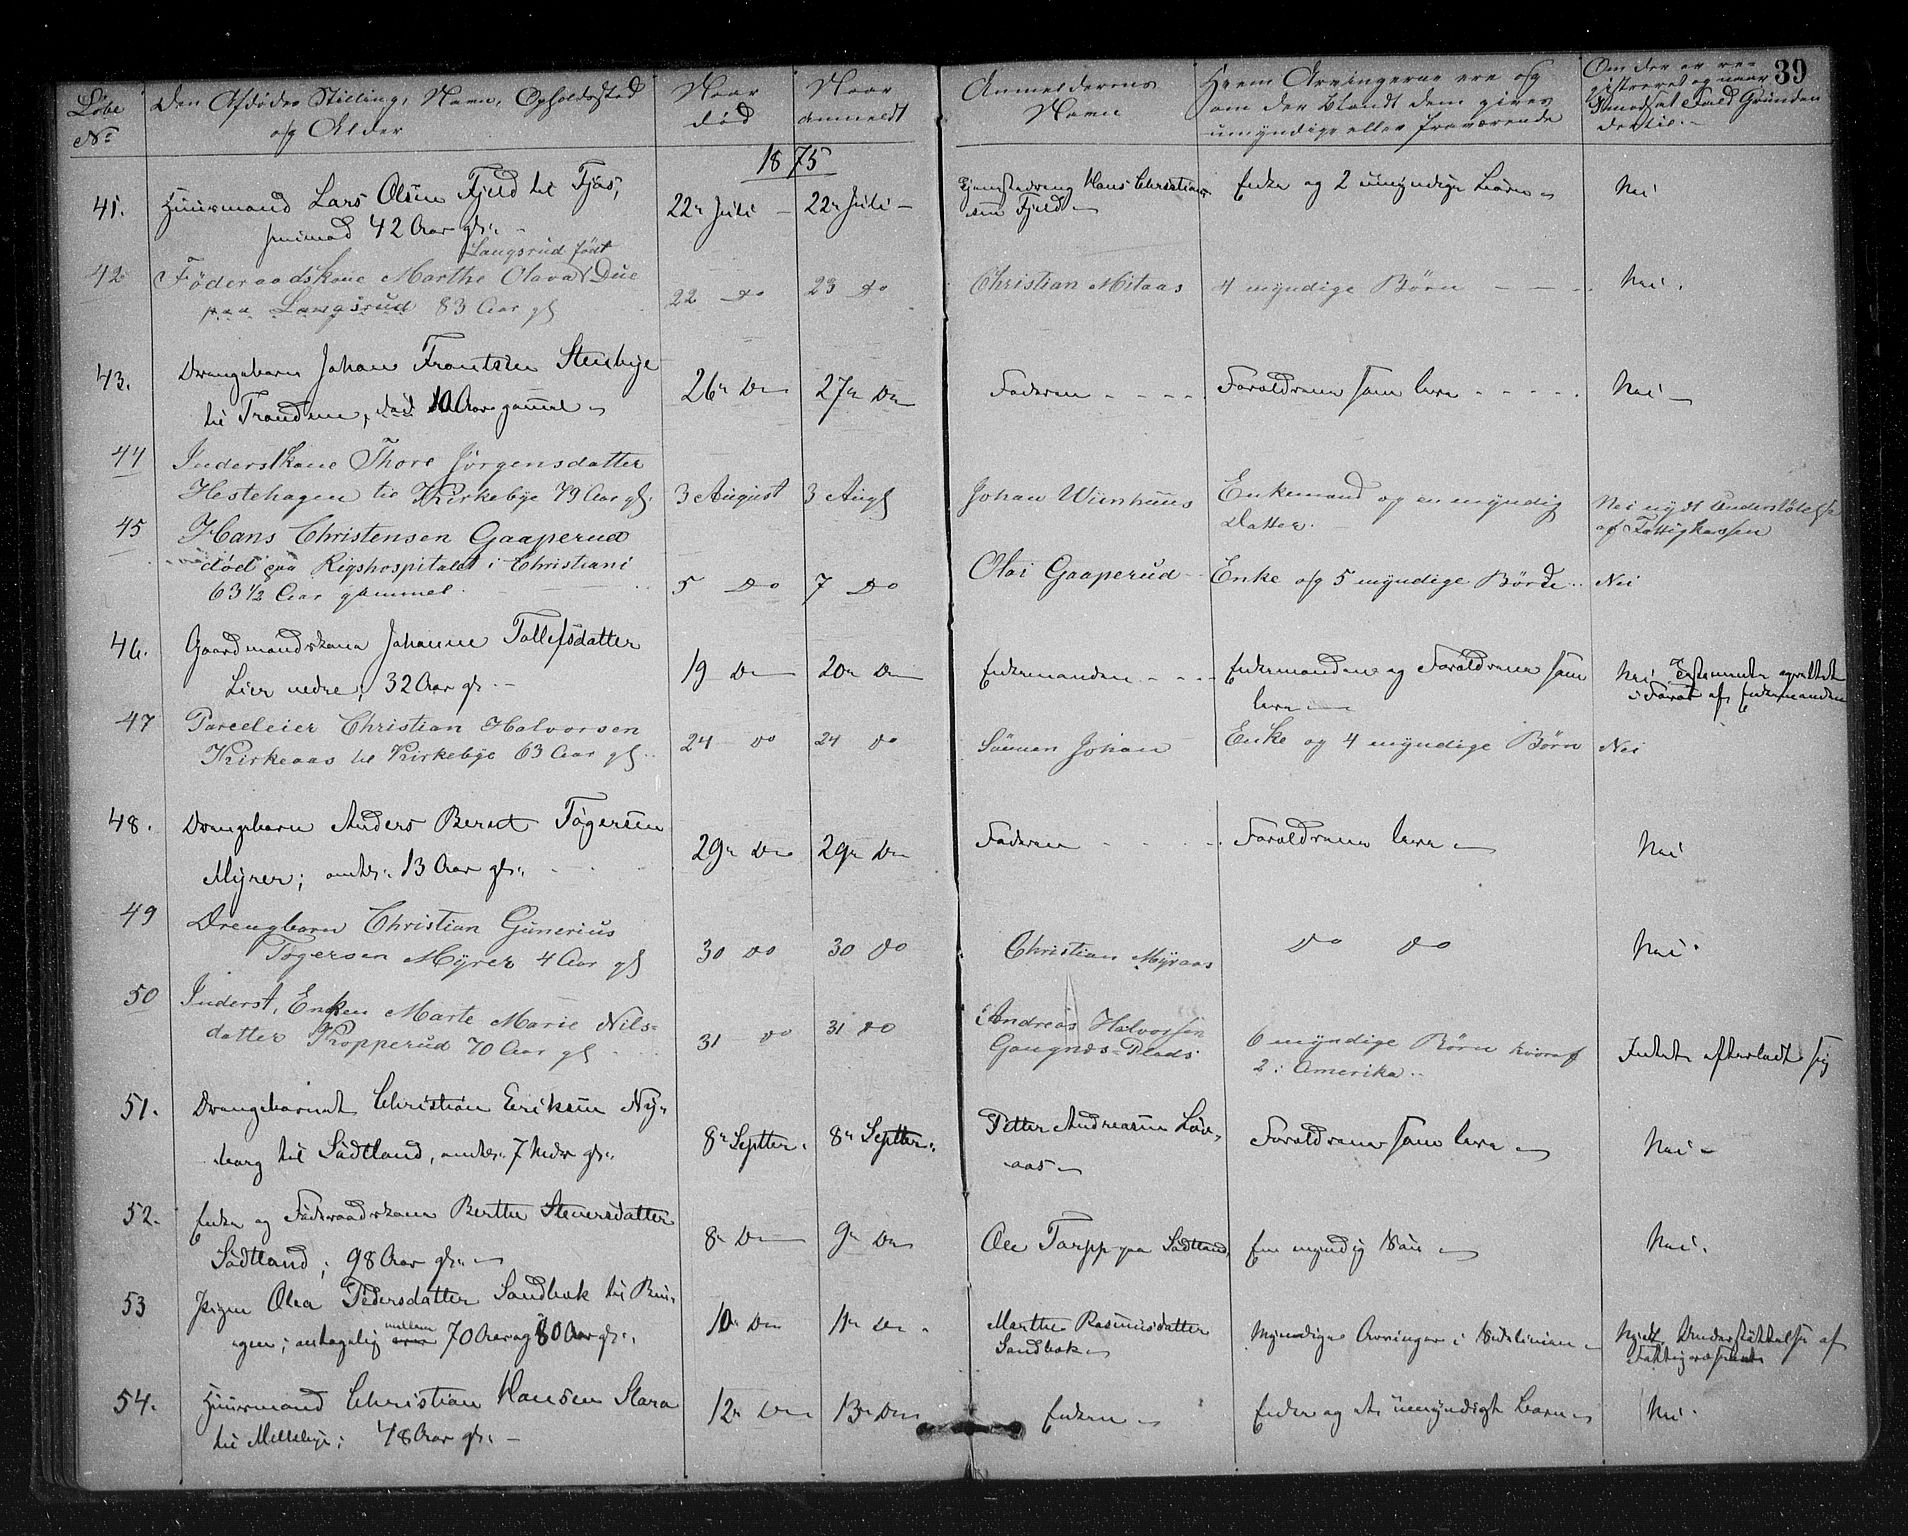 39
Löbe No
Den Afdödes Stilling, Navn, Opholdssted
og Alder
Naar död
Naar anmeldt
Anmelderens Navn
Hvem Arvingerne ere og
om der blandt dem gives
umyndige eller fraværende
Om der er re-
gistreret og naar
modsat Fald Grunden
dertil.
1875
41. Huusmand Lars Olsen Fjeld
42 Aar gl.
22 Juli - 22 Juli -
Hans Christian-
sen Fjeld
Enke og 2 umyndige Börn
Nei
42 Föderaadskone Marthe Olava Due
Langsrud födt
paa Langsrud 83 Aar gl
22 Do 23 Do
Christian Mitaas
4 myndige Börn - - -
Nei.
43. Drengebarn Johan Frantsen Stenbye
10 Aar gammel
26 Do 27 Do
Faderen - - - -
Foraldrene som leve - - - - -
Nei
44 Inderstkone Thore Jörgensdatter
Hestehagen til Kirkebye 79 Aar gl.
3 August 3 Augt
Johan Wiinhuus
Enkemand og en myndig
Datter. -
Nei nydt Understötelse
af Fattigkassen
45 Hans Christensen Gaaperud
död paa Rigshospitalet i Christiani
63 1/2 Aar gammel.
5 Do 7 Do
Olai Gaaperud
Enke og 5 myndige Börn
Nei
46. Gaardmandskone Johanne Tollefsdatter
Lier nedre, 32 Aar gl. -
19 Do 20 Do
Enkemanden - - -
Enkemanden og Foraldrene som
leve
Nei Testamente oprettet
i Favør af Enkemanden
47 Parceleier Christian Halvorsen
Kirkeaas til Kirkebye 63 Aar gl
24 Do 24 Do
Sönnen Johan
Enke og 4 myndige Börn
Nei
48. Drengebarn Anders Bernt Togersen
Myrer; omtr. 13 Aar gl.
29 Do 29 Do
Faderen - - - -
Foraldrene leve
Nei
49 Drengbarn Christian Gunerius
Togersen Myrer 4 Aar gl
30 Do 30 Do
Christian Myraas
Do Do
Nei.
50 Inderst, Enken Marte Marie Nils-
datter Kropperud 70 Aar gl
31 Do 31 Do
Andreas Halvorsen
6 myndige Börn hvoraf
2 i Amerika..
Intet efterladt sig
51. Drengebarnet Christian Eriksen Ny-
borg til Södtland, omtr. 7 Mdr gl.
8 Septter. 8 Septter.
Petter Andreasen Löv-
aas
Foraldrene som leve
Nei -
52. Enke og Föderaadskone Berthe Steuersdatter
Södtland; 98 Aar gl.
8 Do 9 Do
Ole Torpp paa Södtland
En myndig Sön
Nei.
53 Pigen Olea Pedersdatter Sandbak til Bin-
gen; antagelig mellem 70 Aar og 80 Aar gl.
10 Do 11 Do
Marthe Rasmusdatter
Sandbak
Myndige Arvinger i Sidelinien
Nydt Understöttelse af
Fattigvæsenet
54. Huusmand Christian Hansen Stara
til Mellebye; 48 Aar gl. -
12 Do 13 Do
Enken
Enke og et umyndigt Barn
Nei.